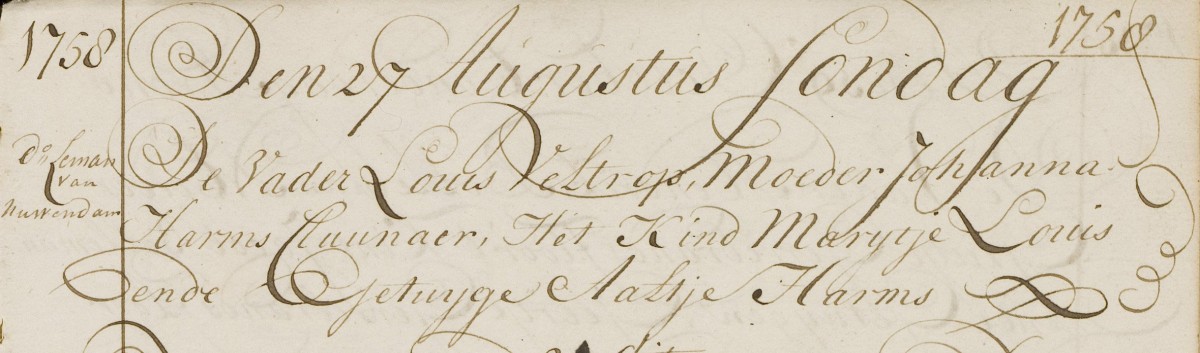 1758
1758
Den 27 Augustus Sondag
Ds Leman
van
De Vader Louis Veltrop, Moeder Johanna
Harms Cluunaer, Het Kind Marytje Louis
ende Getuyge Aaltje Harms